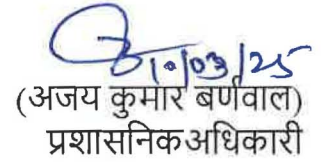 10/03/25
(अजय कुमार बर्णवाल)
प्रशासनिक अधिकारी